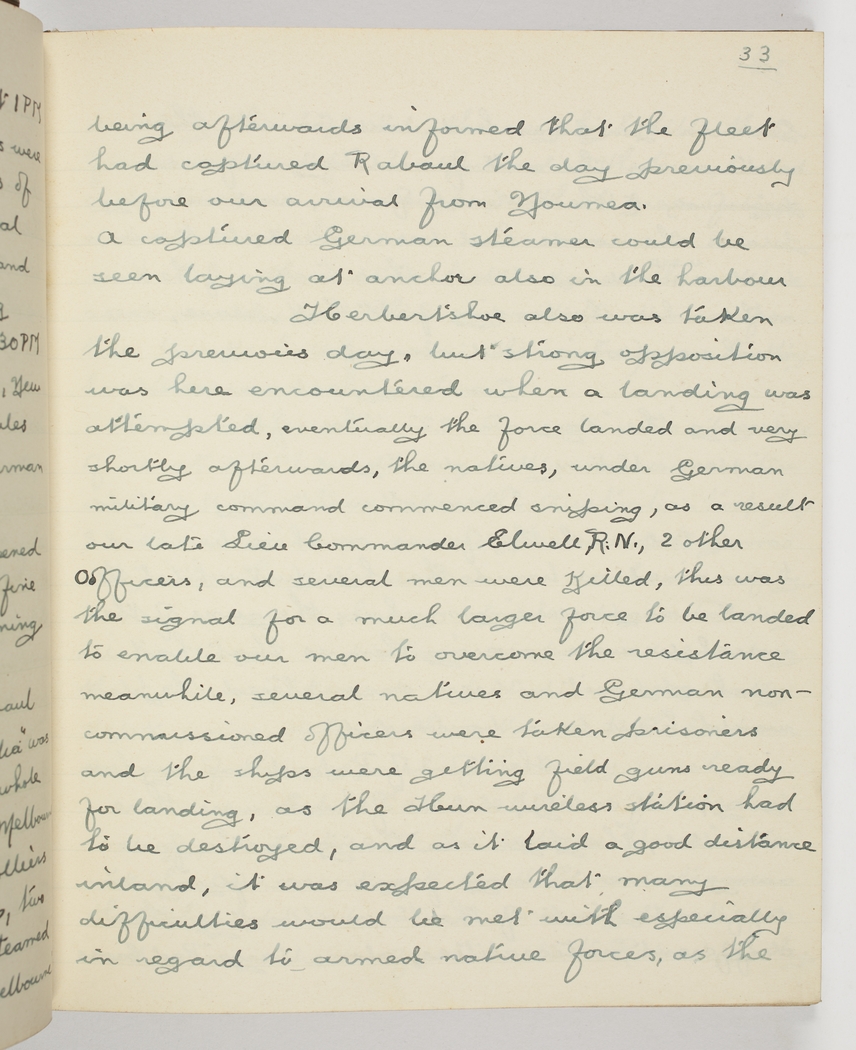 33
being afterwards informed that the fleet
had captured Rabaul the day previously
before our arrival from Noumea.
A captured German steamer could be
seen laying at anchor also in the harbour
Herbertshoe also was taken
the previous day, but strong opposition
was here encountered when a landing was
attempted, eventually the force landed and very
shortly afterwards, the natives, under German
military command commenced sniping, as a result
our late Lieu Commander Elwell, R.N., 2 other
Officers, and several men were Killed, this was
the signal for a much larger force to be landed
to enable our men to overcome the resistance
meanwhile, several natives and German non-
commissioned officers were taken prisoners
and the ships were getting field guns ready
for landing, as the Hun wireless station had
to be destroyed, and as it laid a good distance
inland, it was expected that many
difficulties would be met with especially
in regard to armed native forces, as the